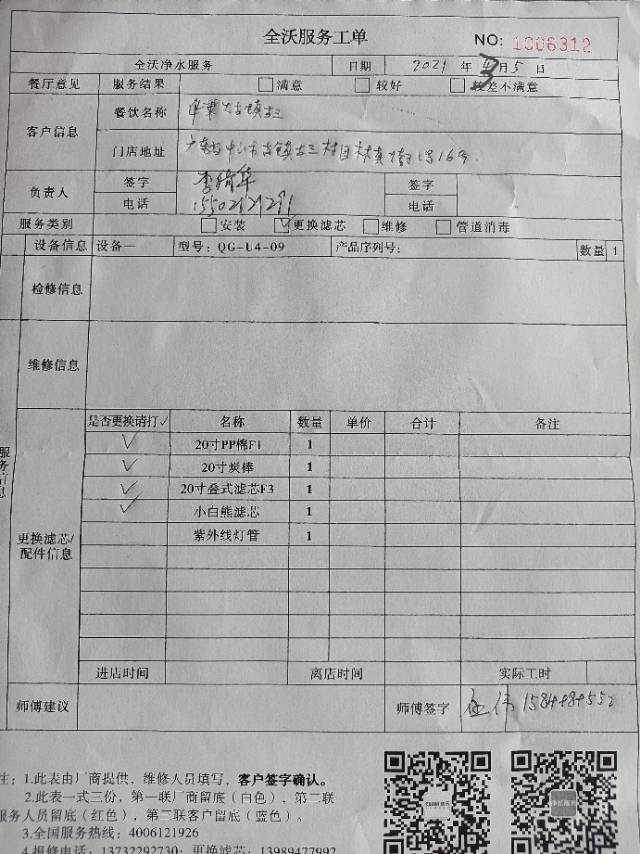 全沃服务工单
NO: 1006312
全沃净水服务 日期 2021 年 3 月 5 日
餐厅意见 服务结果 满意 较好 较差不满意
客户信息 餐饮名称
门店地址 广东省中山市古镇古三村
负责人 签字 签字
电话 电话
服务类别 安装 ✓更换滤芯 维修 管道消毒
设备信息 设备一 型号：QG-U4-09 产品序列号： 数量 1
检修信息
维修信息
服务信息
更换滤芯/配件信息
是否更换请打✓ 名称 数量 单价 合计 备注
✓ 20寸PP棉F1 1
✓ 20寸炭棒 1
✓ 20寸叠式滤芯F3 1
✓ 小白熊滤芯 1
紫外线灯管 1
进店时间 离店时间 实际工时
师傅建议 师傅签字
注：1.此表由厂商提供，维修人员填写，客户签字确认。
2.此表一式三份，第一联厂商留底（白色），第二联
服务人员留底（红色），第二联客户留底（蓝色）。
3.全国服务热线：4006121926
4.报修电话：13732292730；更换滤芯：13989477992